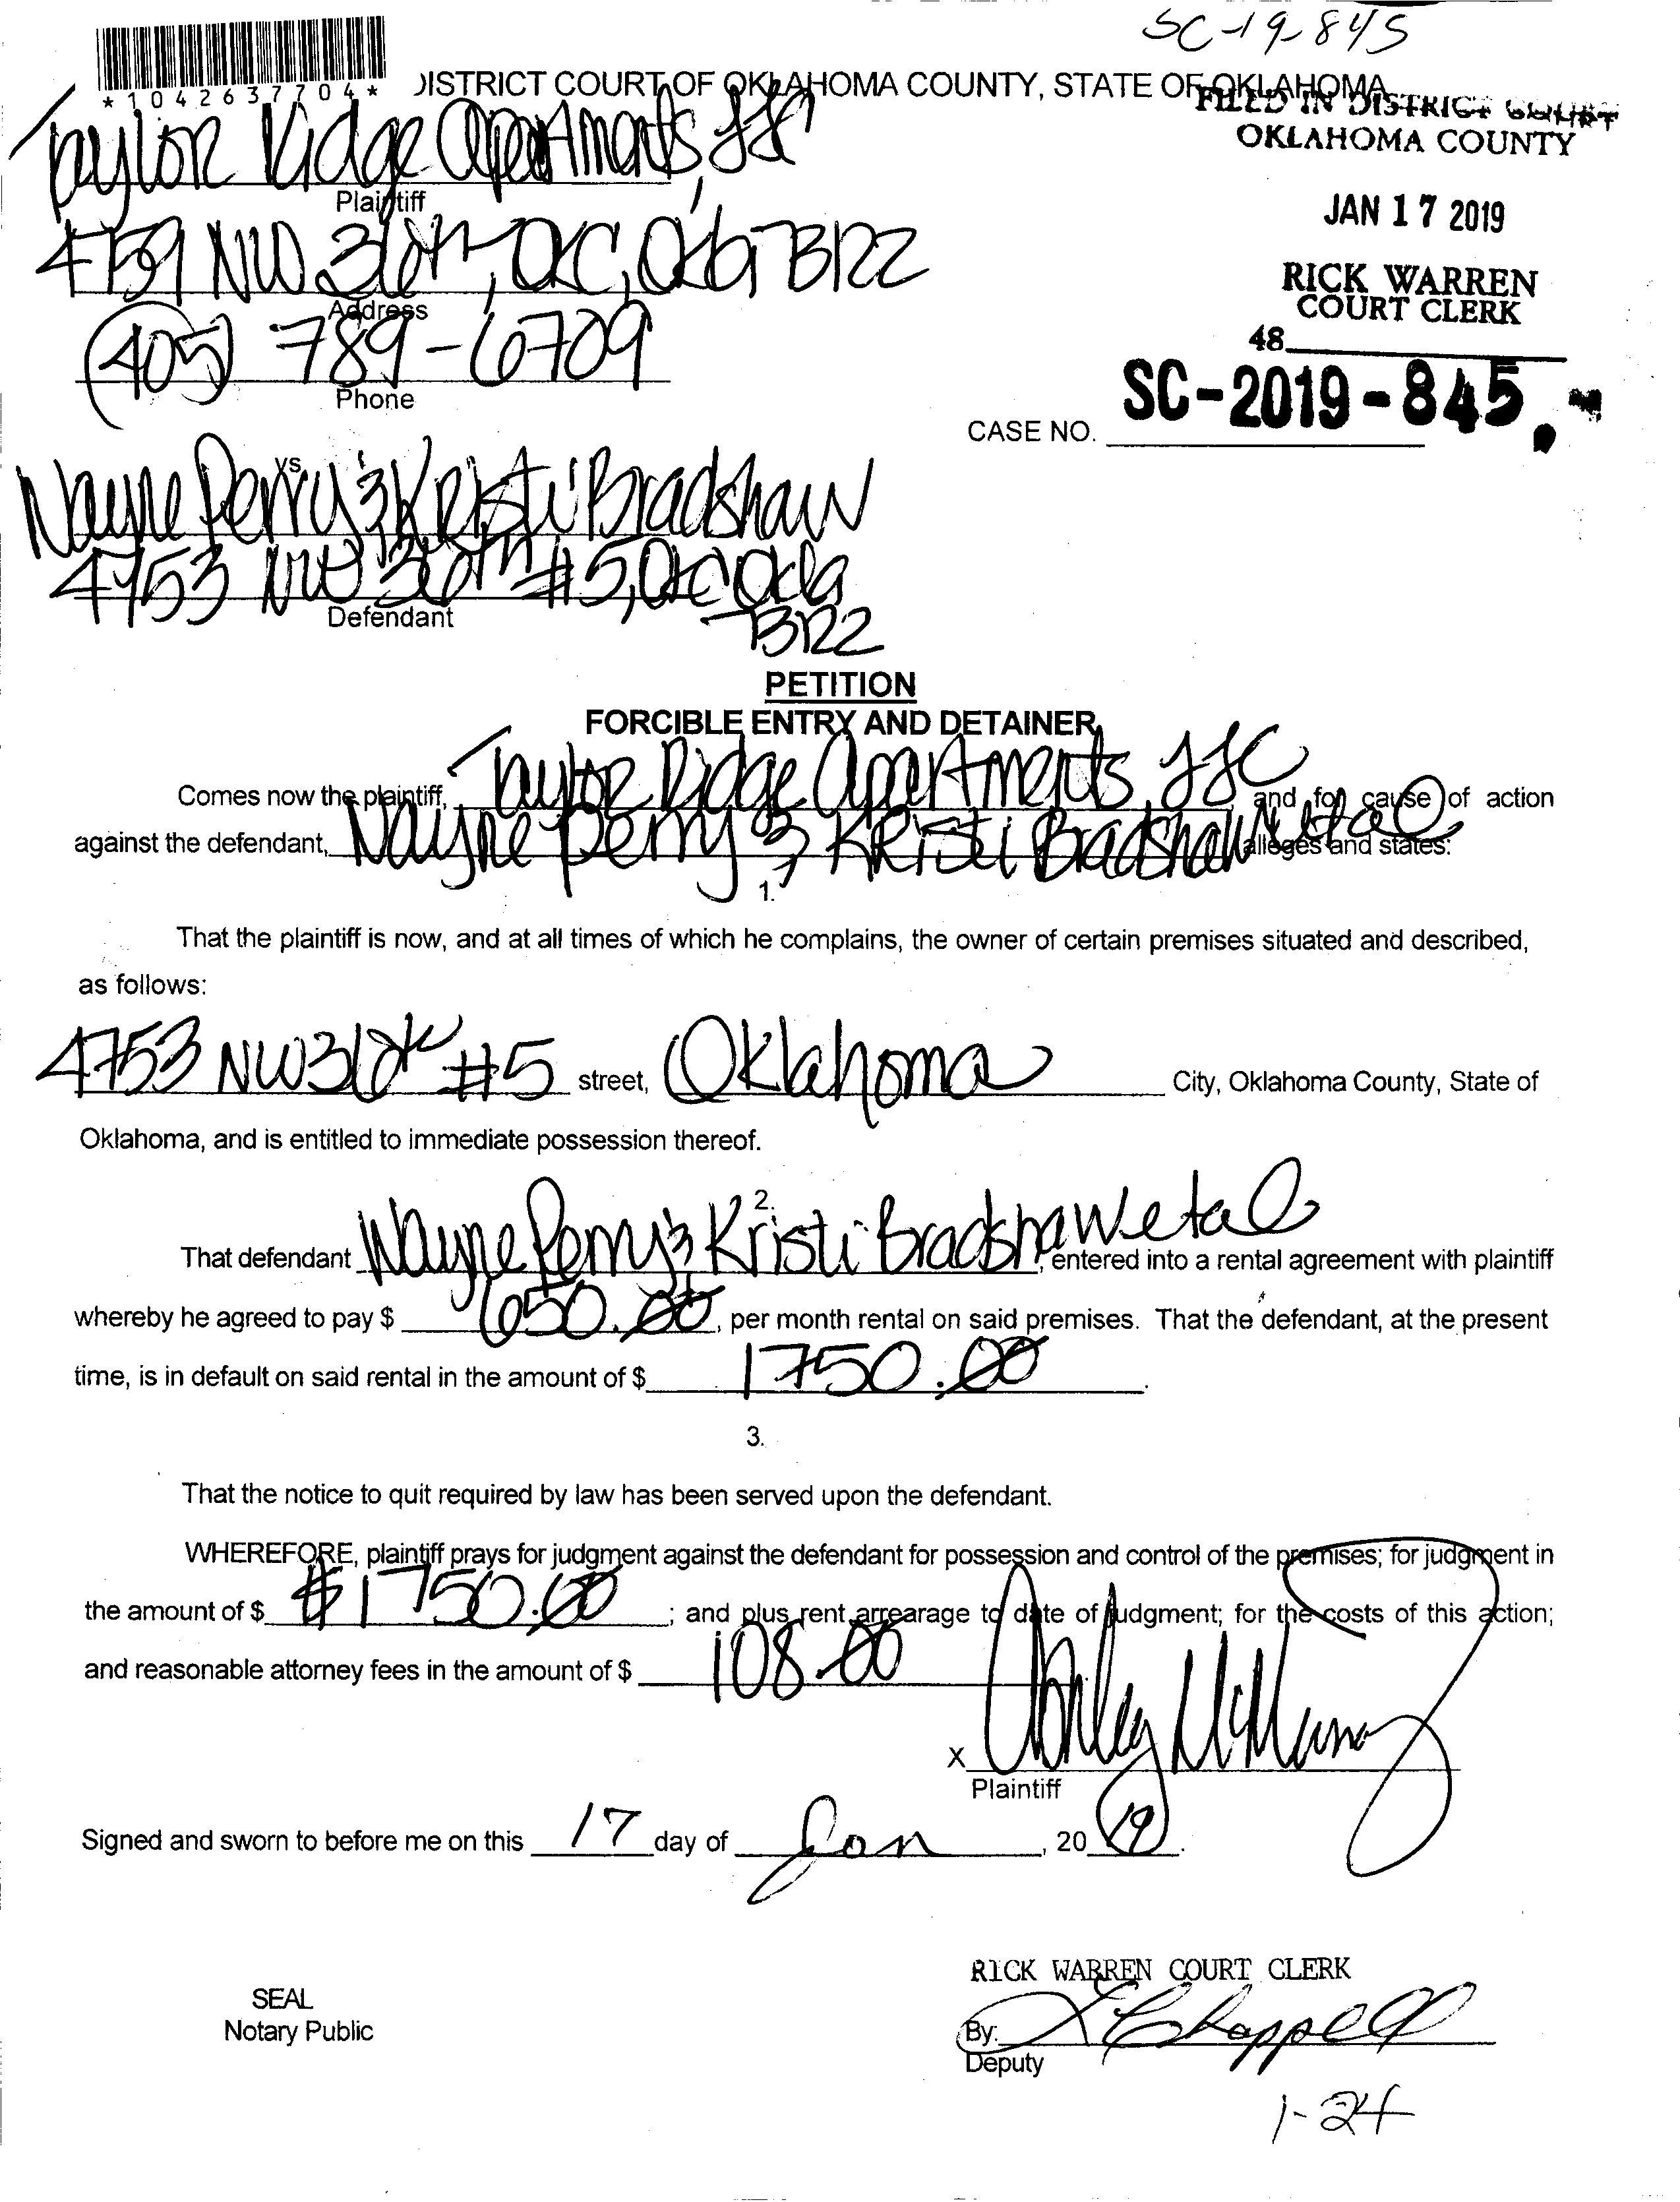 SC-19-845
*1042637704*
DISTRICT COURT OF OKLAHOMA COUNTY, STATE OF OKLAHOMA
FILED IN DISTRICT COURT
OKLAHOMA COUNTY
Taylor Ridge Apartments, LLC
Plaintiff
JAN 17 2019
4759 NW 36th, OKC, Okla 73122
Address
RICK WARREN
COURT CLERK
(405) 789-6709
Phone
48
CASE NO. SC-2019-845
vs.
Wayne Perry & Kristi Bradshaw
4753 NW 36th #5, OKC Okla
Defendant
73122
PETITION
FORCIBLE ENTRY AND DETAINER
Comes now the plaintiff, Taylor Ridge Apartments, LLC and for cause of action
against the defendant, Wayne Perry & Kristi Bradshaw et al alleges and states:
1.
That the plaintiff is now, and at all times of which he complains, the owner of certain premises situated and described,
as follows:
4753 NW 36th #5 street, Oklahoma City, Oklahoma County, State of
Oklahoma, and is entitled to immediate possession thereof.
2.
That defendant Wayne Perry & Kristi Bradshaw et al, entered into a rental agreement with plaintiff
whereby he agreed to pay $ 650.00, per month rental on said premises. That the defendant, at the present
time, is in default on said rental in the amount of $ 1750.00.
3.
That the notice to quit required by law has been served upon the defendant.
WHEREFORE, plaintiff prays for judgment against the defendant for possession and control of the premises; for judgment in
the amount of $ $1750.00; and plus rent arrearage to date of judgment; for the costs of this action;
and reasonable attorney fees in the amount of $ 108.00
X Ashley McMurray
Plaintiff
Signed and sworn to before me on this 17 day of Jan, 2019.
RICK WARREN COURT CLERK
SEAL
Notary Public
By: Chappell
Deputy
1-24